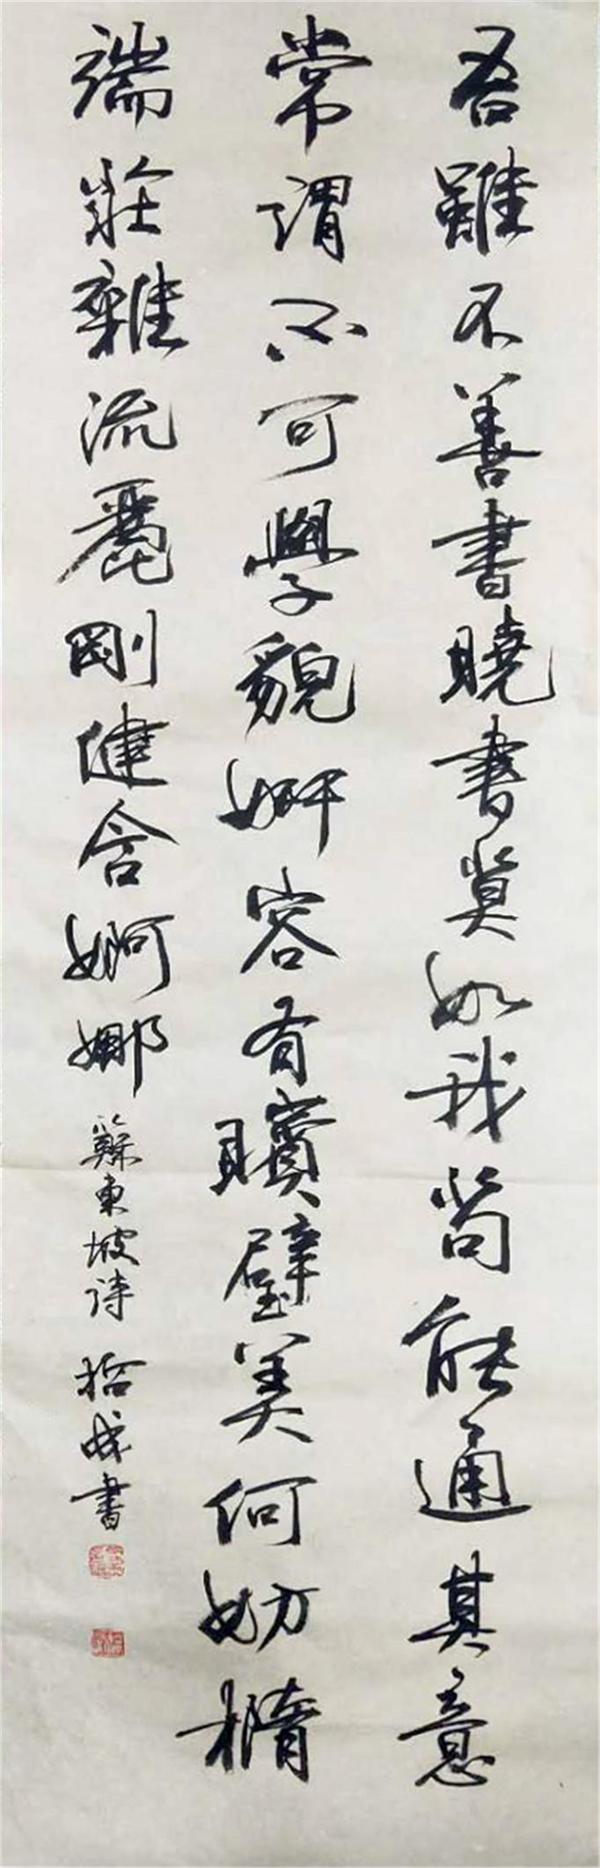 吾雖不善書曉書莫如我苟能通其意
常謂不可學貌妍容有矉璧美何妨橢
端莊雜流麗剛健含婀娜
蘇東坡诗 拾成書